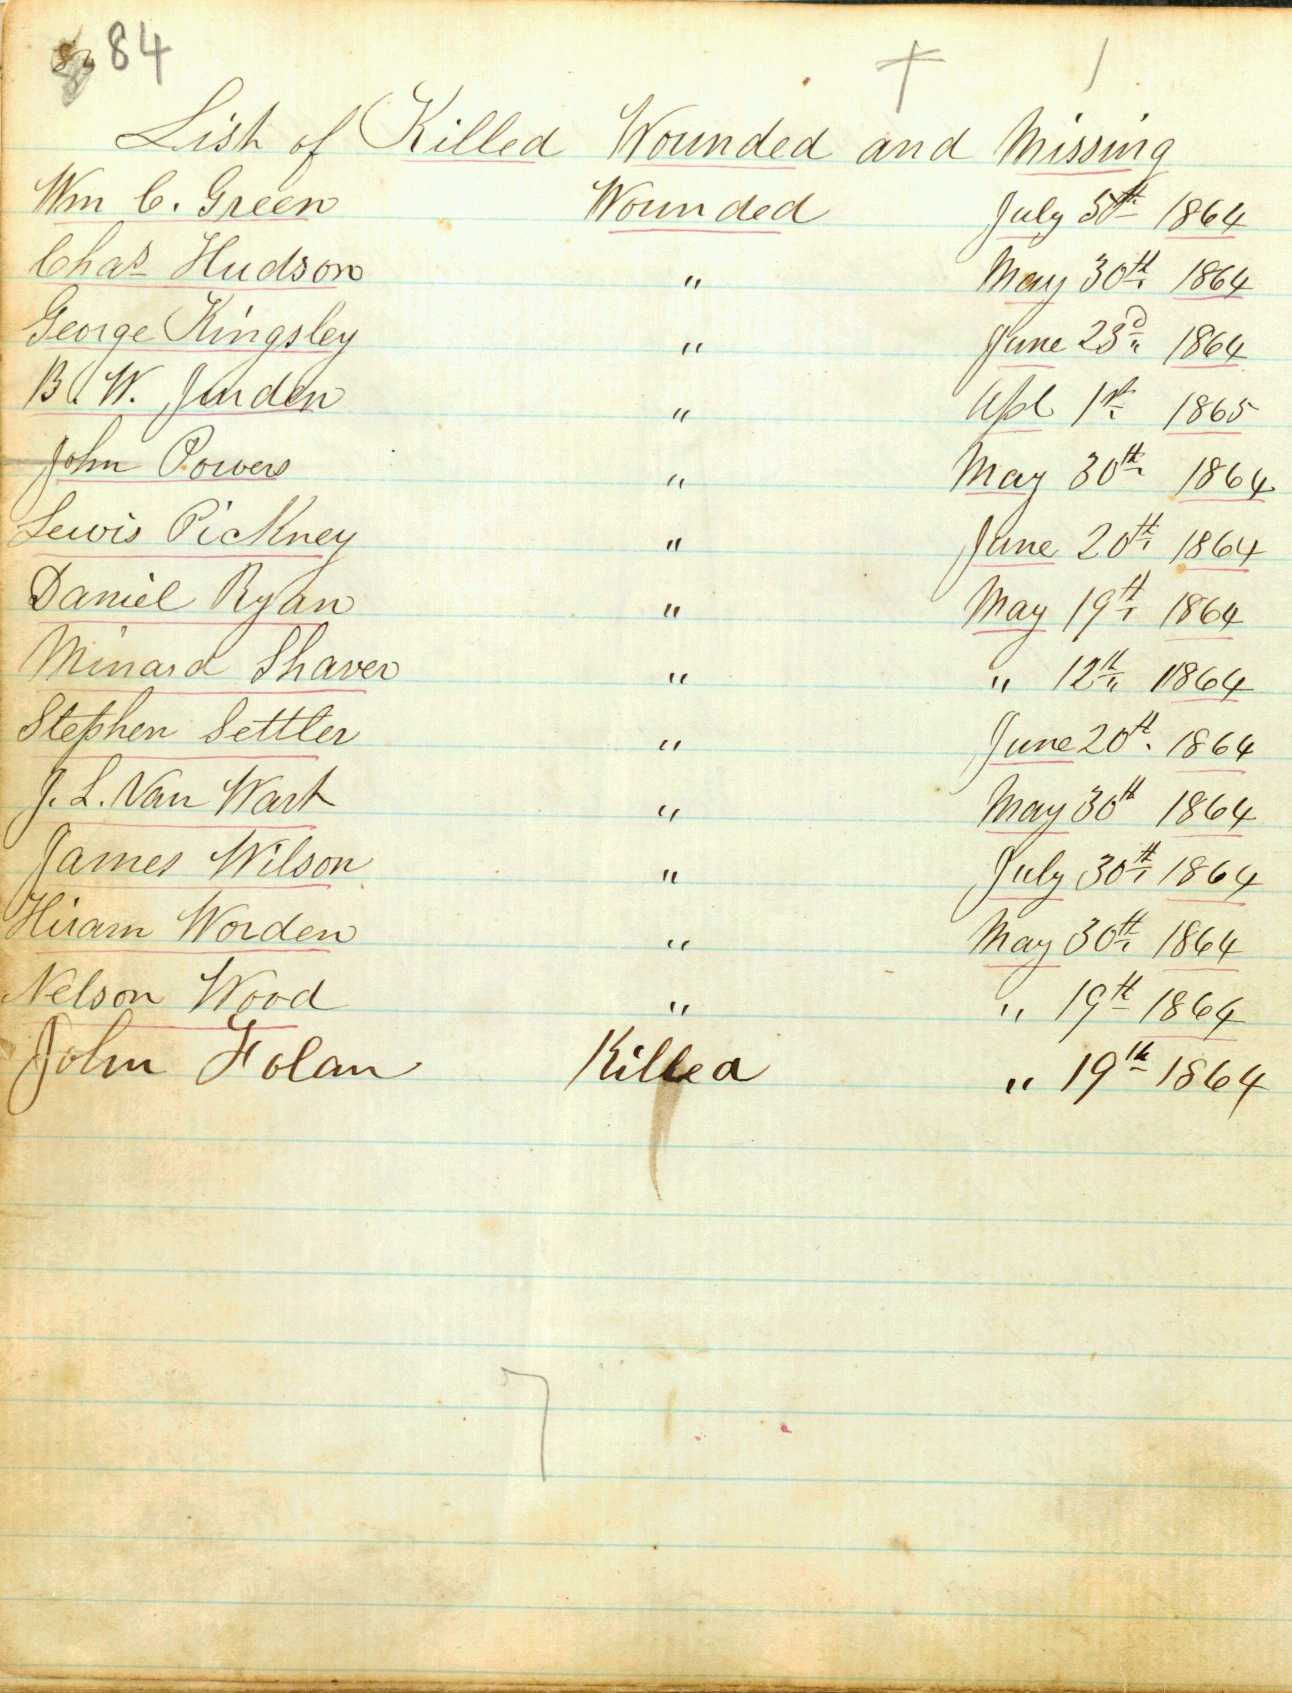 84
List of Killed Wounded and Missing
Wm C. Green Wounded July 5th 1864
Chas Hudson " May 30th 1864
George Kingsley " June 23d 1864
B. W. Jurden " Apl 1st 1865
John Powers " May 30th 1864
Lewis Pickney " June 20th 1864
Daniel Ryan " May 19th 1864
Minard Shaver " " 12th 1864
Stephen Settler " June 20th 1864
J. L. Van Wart " May 30th 1864
James Wilson " July 30th 1864
Hiram Worden " May 30th 1864
Nelson Wood " " 19th 1864
John Folan Killed " 19th 1864
7